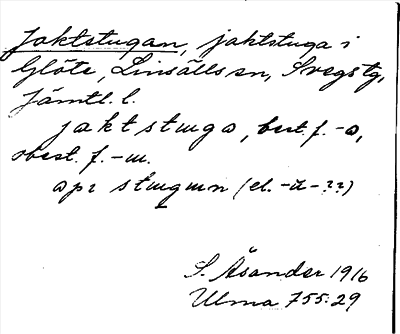 Jaktstugan, jaktstuga i
Glöte, Linsälls sn, Svegs tg,
Jämtl. l.
jaktstuga, best. f. -a,
obest. f. -u.
api stugun (el. -ū-??)
S. Åsander 1916
Ulma 755:29